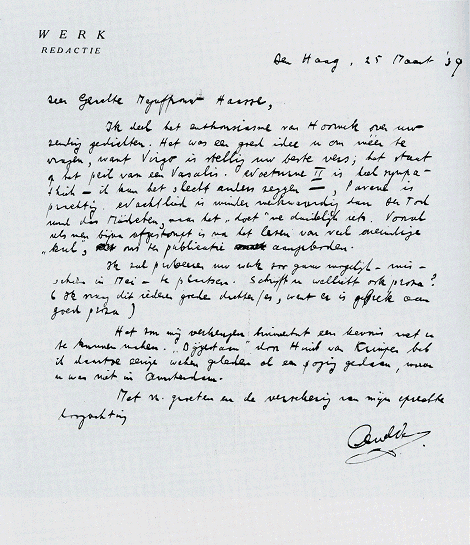 WERK
REDACTIE
Den Haag, 25 Maart '39
Zeer Geachte Mejuffrouw Haasse,
Ik deel het enthousiasme van Hoornik over uw
zending gedichten. Het was een goed idee u om méér te
vragen, want Virgo is stellig uw beste vers; het staat
op het peil van een Vasalis. Nocturne II is heel sympa-
thiek – ik kan het slecht anders zeggen –, Pavane is
prachtig. is minder dan De Tod
und das Mädchen, maar het "doet" me duidelijk iets. Vooral
als men bijna afgestompt is na het lezen van veel
", ons ter publicatie aangeboden.
Ik zal proberen uw werk zoo gauw mogelijk – mis-
schien in Mei – te plaatsen. Schrijft u wellicht ook proza?
(Ik vraag dit iedere goede dichter/es, want er is gebrek aan
goed proza)
Het zou mij verheugen binnenkort een kennis met u
te kunnen maken. door Huib van Krimpen heb
ik daartoe eenige weken geleden al een poging gedaan, maar
u was niet in Amsterdam.
Met vr. groeten en de verzekering van mijn oprechte
hoogachting